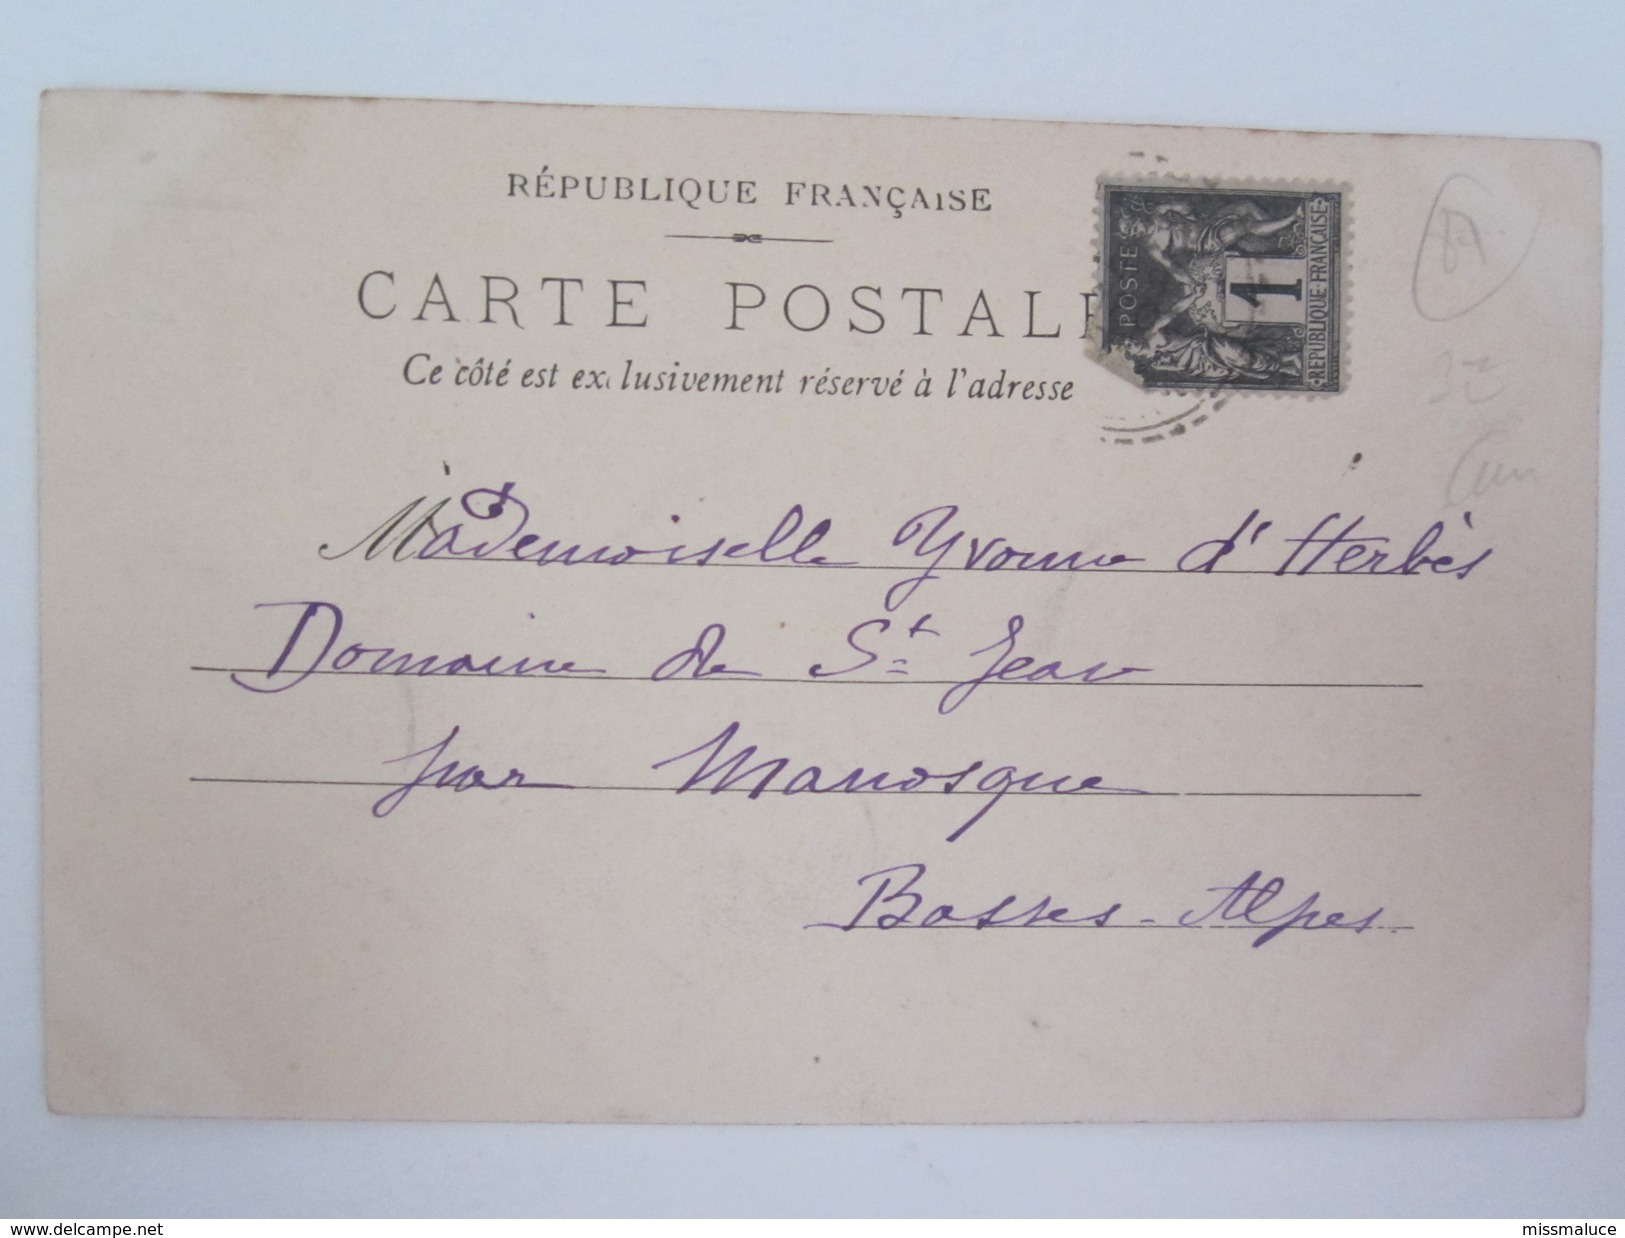 RÉPUBLIQUE FRANÇAISE
CARTE POSTAL
Ce côté est exclusivement réservé à l'adresse
POSTES
1
RÉPUBLIQUE-FRANÇAISE
87
Mademoiselle Yvonne d'Herbès
Domaine de St Jean
par Manosque
Basses-Alpes.
www.delcampe.net
missmaluce